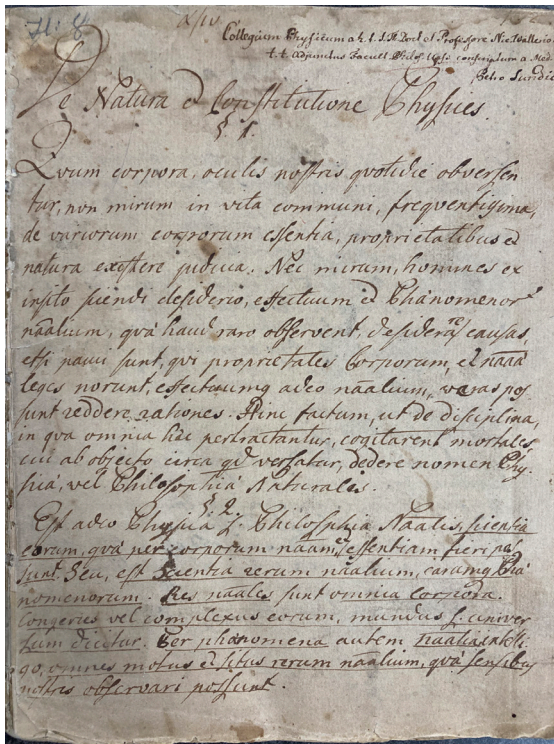 Collegium Physicum a
Professore Nic. Wallerio
t. t. Adjunctus Facult. Philos. Ups. conscriptum a
Petro
De Natura et Constitutione Physices.
§ 1.
Qvum corpora, oculis nostris qvotidie obversen
tur, non mirum in vita communi, freqventissima,
de variorum corporum essentia, proprietatibus et
natura existere judicia. Nec mirum, homines ex
insito sciendi desiderio, effectuum et Phænomenor
nāalium, qvæ haud raro observent, causas,
etsi pauci sunt, qvi proprietates Corporum, et
leges norunt, effectuumq adeo nāalium, veras pos
sunt reddere rationes. Hinc factum, ut de disciplina,
in qva omnia hæc pertractantur, cogitarent mortales,
cui ab objecto circa qd versatur, dedere nomen Phy
sicæ, vel Philosophiæ Naturales.
§ 2.
Est adeo Physica Philosophia Naalis, scientia
eorum, qvæ per corporum essentiam fieri pos
sunt. Seu, est Scientia rerum nāalium, earumq Phæ
nomenorum. Res nāales sunt omnia corpora.
Congeries vel complexus eorum, mundus s. univer
sum dicitur. Per phænomena autem nāalia intelli
go, omnes motus et situs rerum nāalium, qvæ sensibus
nostris observari possunt.